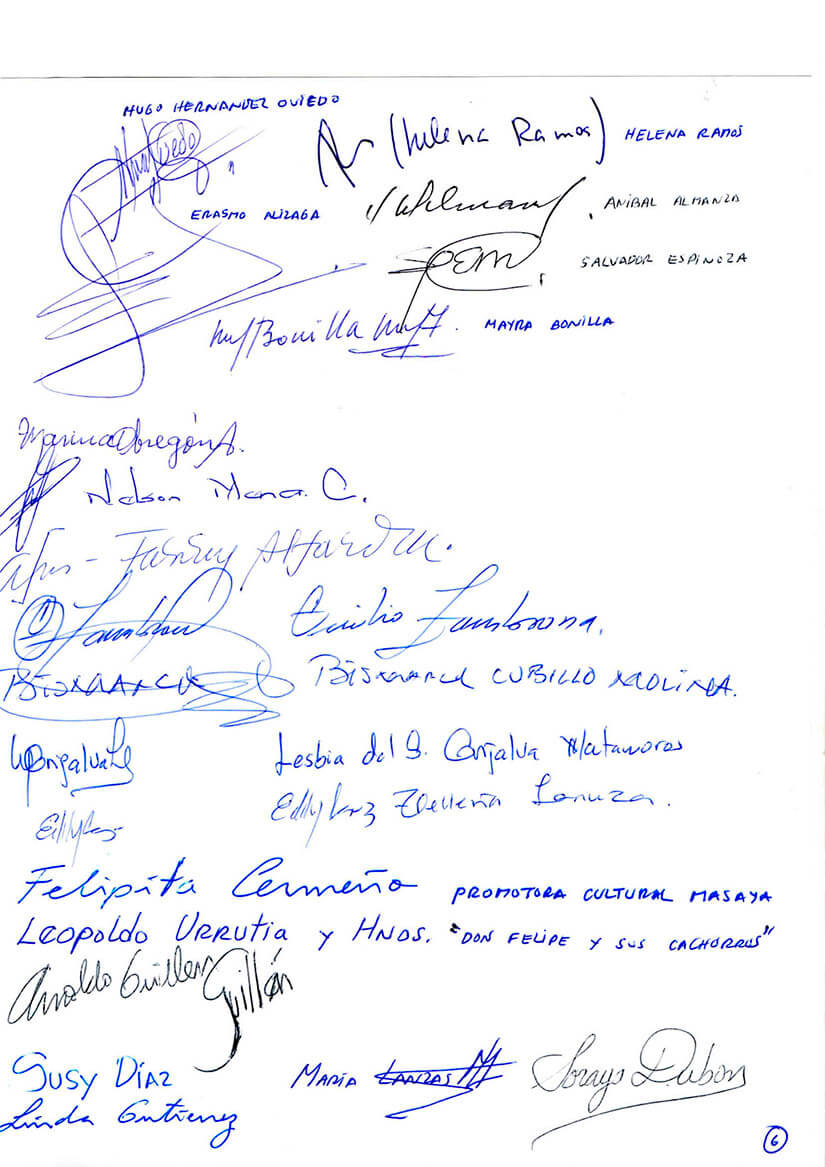 HUGO HERNANDEZ OVIEDO
(Helena Ramos) HELENA RAMOS
ERASMO ALIZAGA
ANIBAL ALMANZA
SALVADOR ESPINOZA
Bonilla MAYRA BONILLA
Marina Obregón A.
Nelson Mena C.
Fanny Alfaro M.
Emilio Zambrana.
BISMARCK BISMARCK CUBILLO MOLINA.
Grijalva Lesbia del S. Grijalva Matamoros
Felipita Cermeño PROMOTORA CULTURAL MASAYA
LEOPOLDO URRUTIA Y HNOS. "DON FELIPE Y SUS CACHORROS"
Arnoldo Guillen Guillén
SUSY DÍAZ MARÍA LANZAS M Soraya Dubon
Linda Gutierrez
6